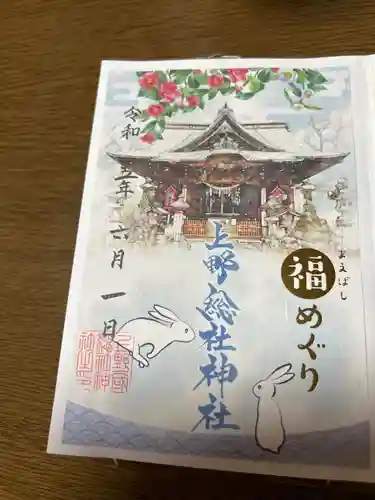 まえばし
福めぐり
上野總社神社
令和五年六月一日